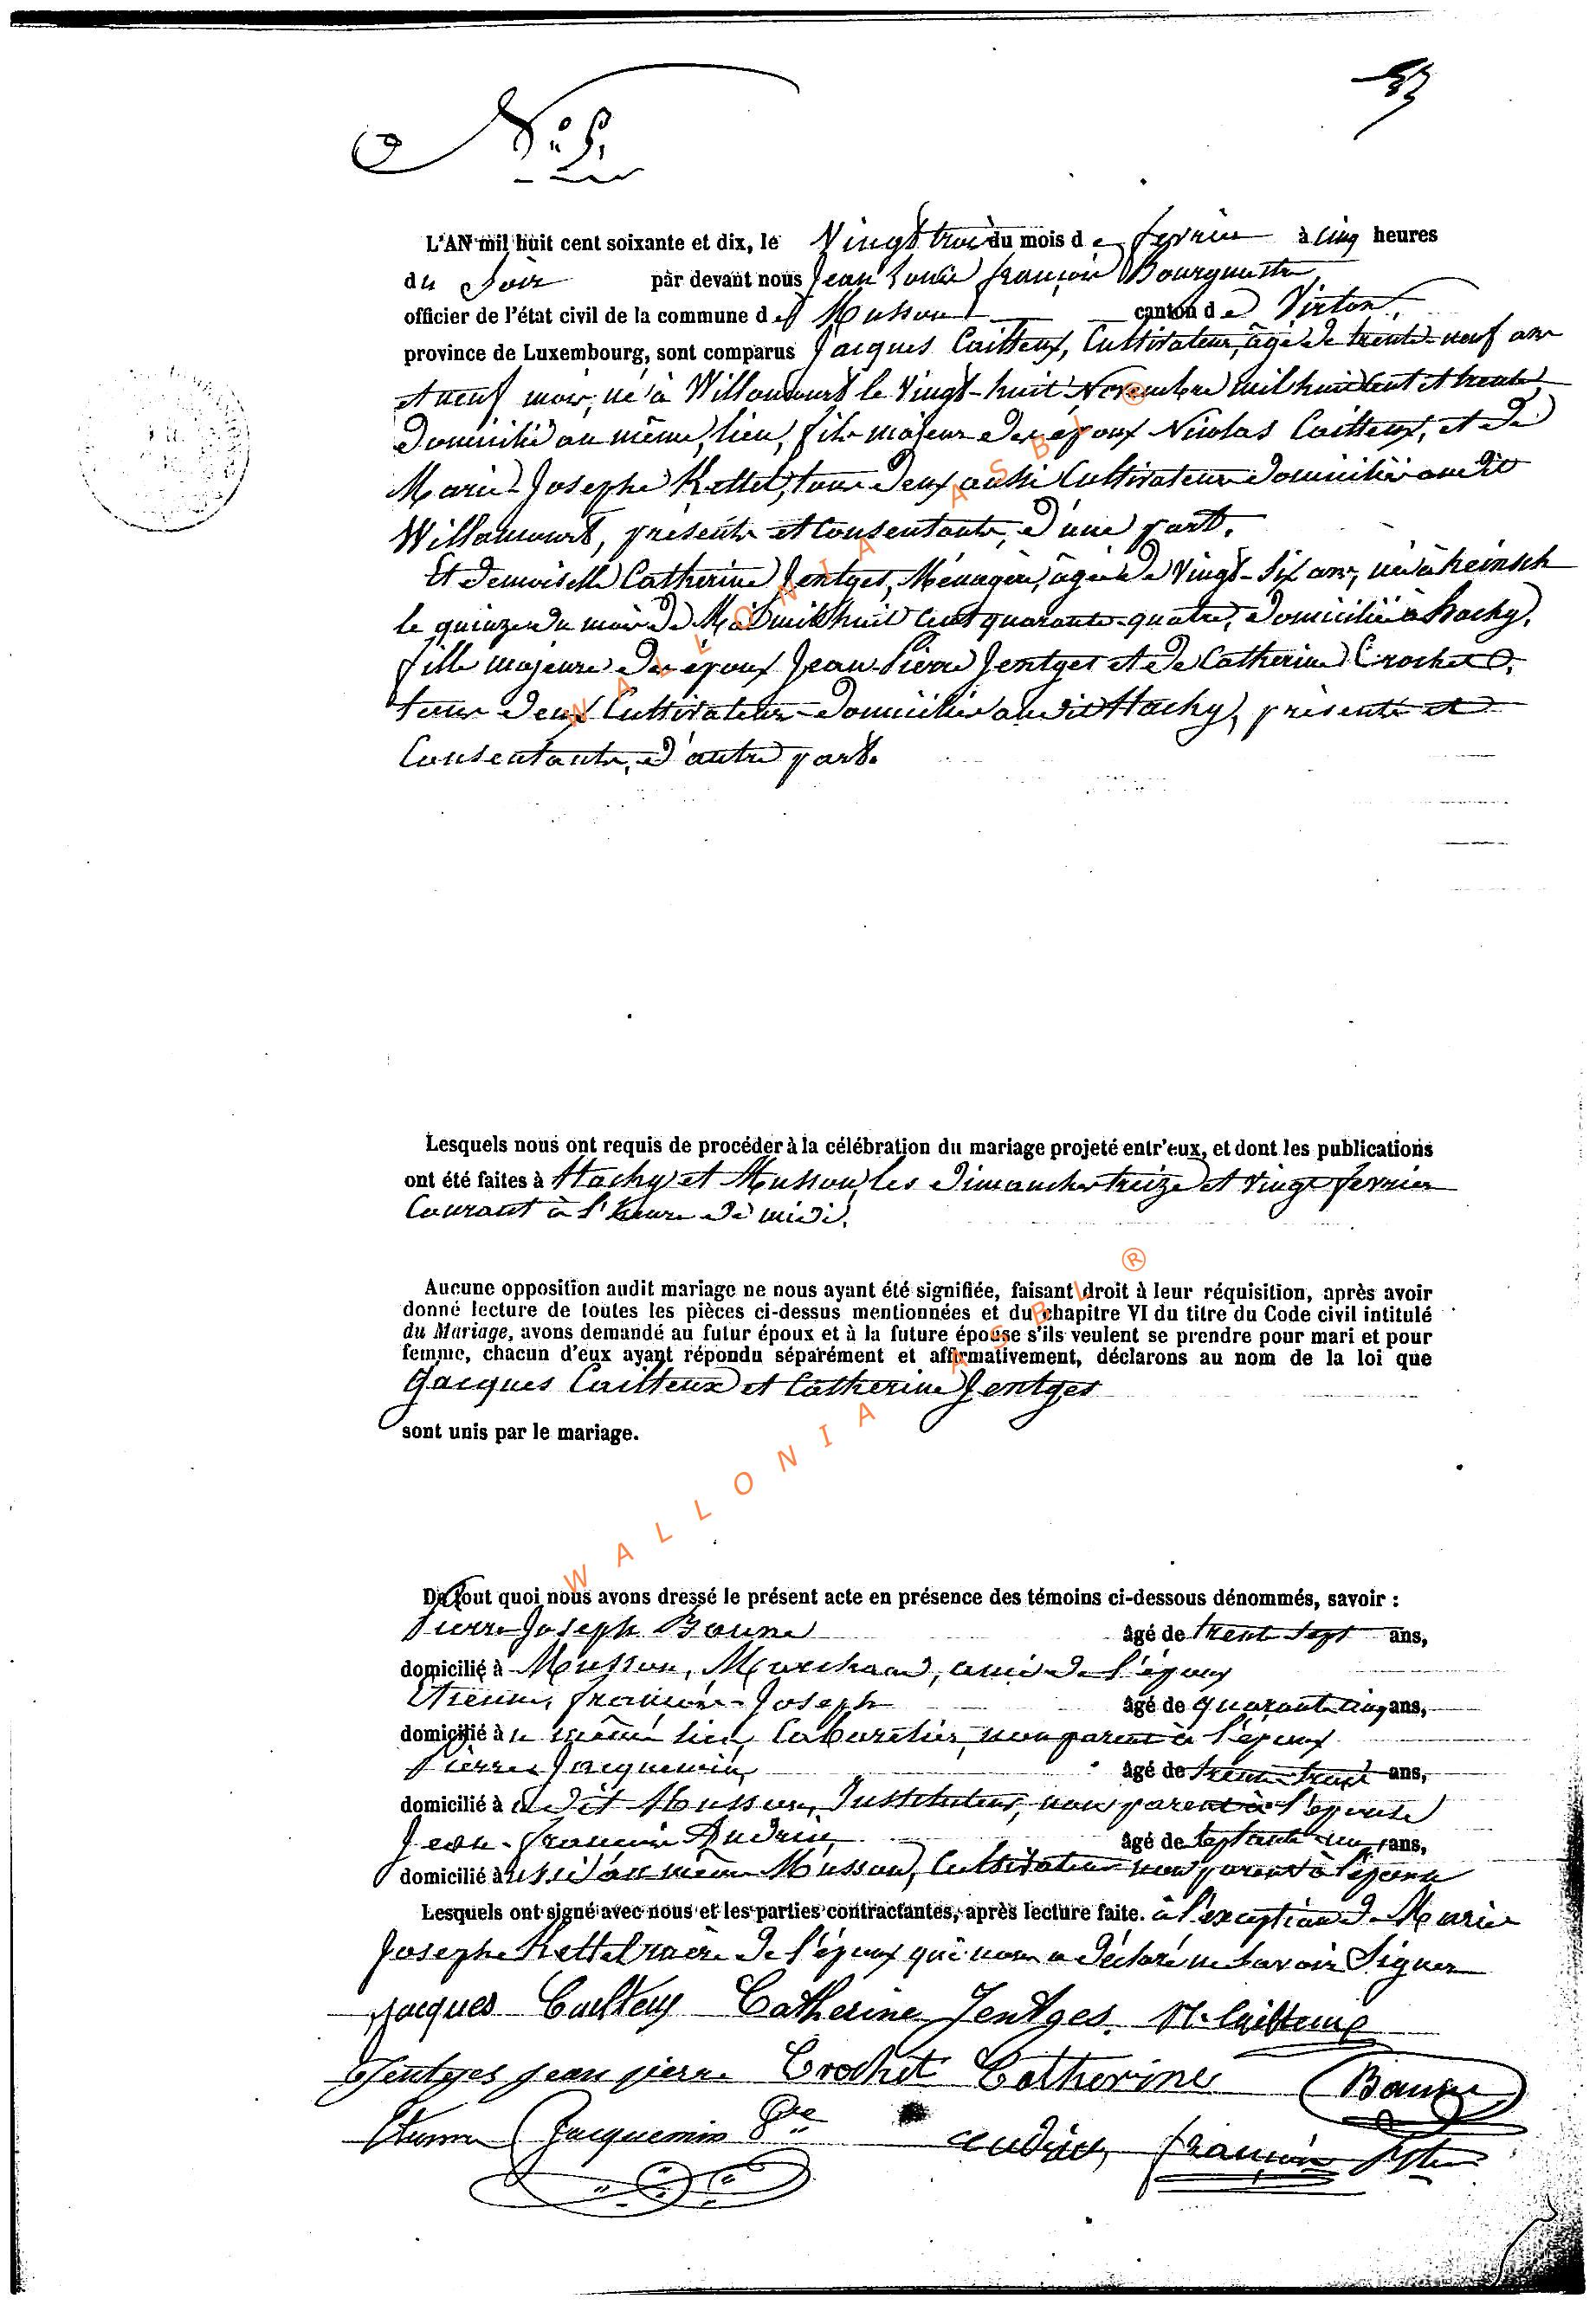 N.° 5.
L'AN mil huit cent soixante et dix, le Vingt trois du mois de fevrier à cinq heures
du Soir par devant nous Jean Louis françois Bourguenter
officier de l'état civil de la commune de Musson canton de Virton,
province de Luxembourg, sont comparus Jacques Cailteux, Cultivateur, âgé de trente-neuf ans
et neuf mois, né à Willancourt le Vingt-huit Novembre mil huit cent et trente,
Domicilié au même lieu, fils majeur des époux Nicolas Cailteux, et de
Marie-Josephe Kettel, tous deux aussi Cultivateurs domiciliés audit
Willancourt, présents et consentants, d'une part.
Et demoiselle Catherine Jentges, Ménagère, âgée de Vingt-Six ans, née à heinsch
le quinze du mois de Mai mil huit cent quarante-quatre, domiciliée à hachy,
fille majeure des époux Jean-Pierre Jentges et de Catherine Crochet
tous deux Cultivateurs domiciliés audit Hachy, présents et
Consentants, d'autre part.
Lesquels nous ont requis de procéder à la célébration du mariage projeté entr'eux, et dont les publications
ont été faites à Hachy et Musson, les dimanches treize et vingt fevrier
Courant à l'heure de midi.
Aucune opposition audit mariage ne nous ayant été signifiée, faisant droit à leur réquisition, après avoir
donné lecture de toutes les pièces ci-dessus mentionnées et du chapitre VI du titre du Code civil intitulé
du Mariage, avons demandé au futur époux et à la future épouse s'ils veulent se prendre pour mari et pour
femme, chacun d'eux ayant répondu séparément et affirmativement, déclarons au nom de la loi que
Jacques Cailteux et Catherine Jentges
sont unis par le mariage.
De tout quoi nous avons dressé le présent acte en présence des témoins ci-dessous dénommés, savoir :
Pierre Joseph Baune âgé de trente sept ans,
domicilié à Musson, Marchand, ami de l'époux
Etienne, françois-Joseph âgé de quarante cinq ans,
domicilié à u même lieu, Cabaretier, non parent à l'époux
Pierre Jacquemin, âgé de trente trois ans,
domicilié à udit Musson, Instituteur, non parent à l'épouse
Jean-françois Audrin âgé de septante-un ans,
domicilié à ussi au même Musson, Cultivateur non parent à l'épouse
Lesquels ont signé avec nous et les parties contractantes, après lecture faite. à l'exception de Marie
Josephe Kettel mère de l'époux qui nous a déclaré ne savoir Signer
Jacques Cailteux Catherine Jentges. N. Cailteux
Jentges jean pierre Crochet Catherine Baune
Etienne Jacquemin Pre audrin, françois
WALLONIA ASBL ®
WALLONIA ASBL ®